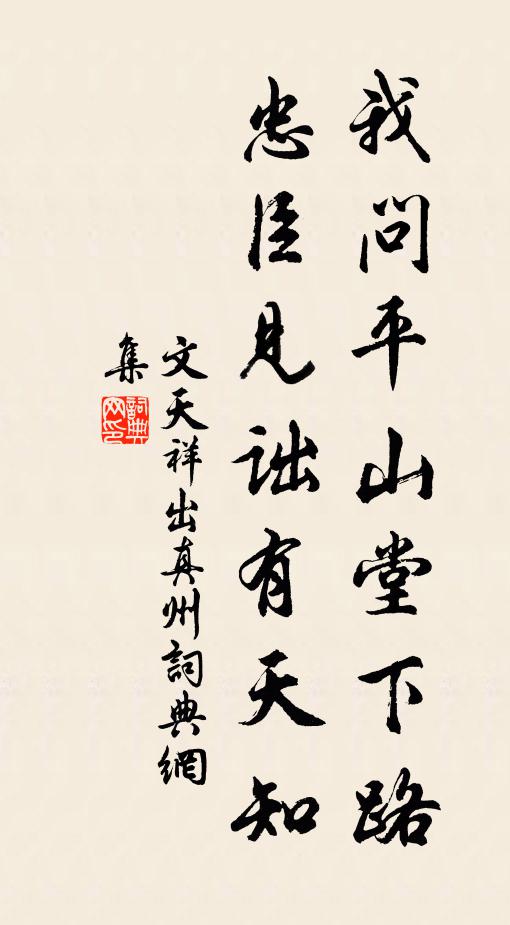 我問平山堂下路
忠臣見詘有天知
文天祥出真州詞典網
集
詞典
网印